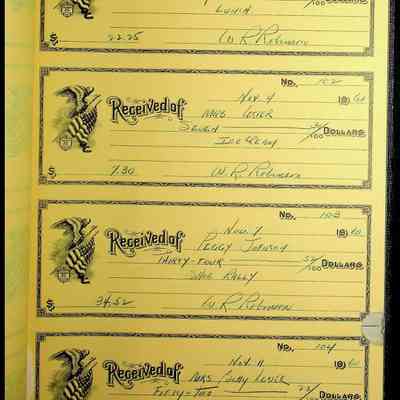 100 Dollars
Lunch
$ 22.25 W. R. Robinson
No. 102
Nov 4 1960
Received of Mrs
Seven /100 Dollars
Ice Cream
$ 7.30 W. R. Robinson
No. 103
Nov. 9 1960
Received of Peggy Johnson
Thirty-four 52/100 Dollars
Rally
$ 34.52 W R Robinson
No. 104
Nov. 11 1960
Received of Mrs
Fifty-two /100 Dollars